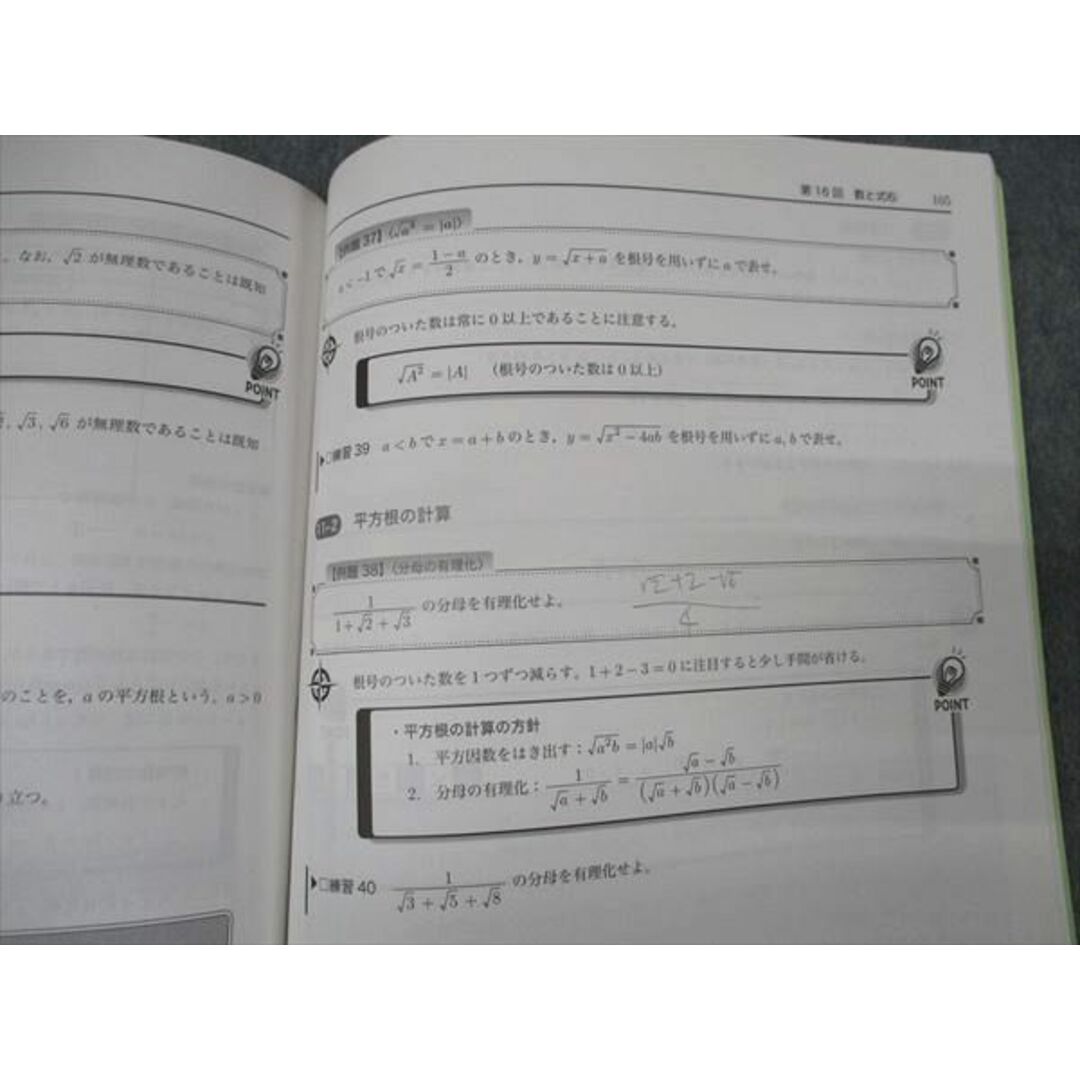 なお，√2 が無理数であることは既知
POINT
√3, √6 が無理数であることは既知
のことを，a の平方根という。a>0
立つ。
第16回 数と式⑥ 165
【例題 37】〈√a² = |a|〉
a < −1 で √x = (1−a)/2 のとき，y = √(x+a) を根号を用いずに a で表せ。
根号のついた数は常に 0 以上であることに注意する。
√A² = |A| （根号のついた数は 0 以上）
POINT
▶□練習 39 a < b で x = a + b のとき，y = √(x²−4ab) を根号を用いずに a, b で表せ。
11-2 平方根の計算
【例題 38】〈分母の有理化〉
1/(1+√2+√3) の分母を有理化せよ。 (√2+2−√6)/4
根号のついた数を 1 つずつ減らす。1+2−3=0 に注目すると少し手間が省ける。
POINT
・平方根の計算の方針
1. 平方因数をはき出す：√(a²b) = |a|√b
2. 分母の有理化：1/(√a+√b) = (√a−√b)/((√a+√b)(√a−√b))
▶□練習 40 1/(√3+√5+√8) の分母を有理化せよ。